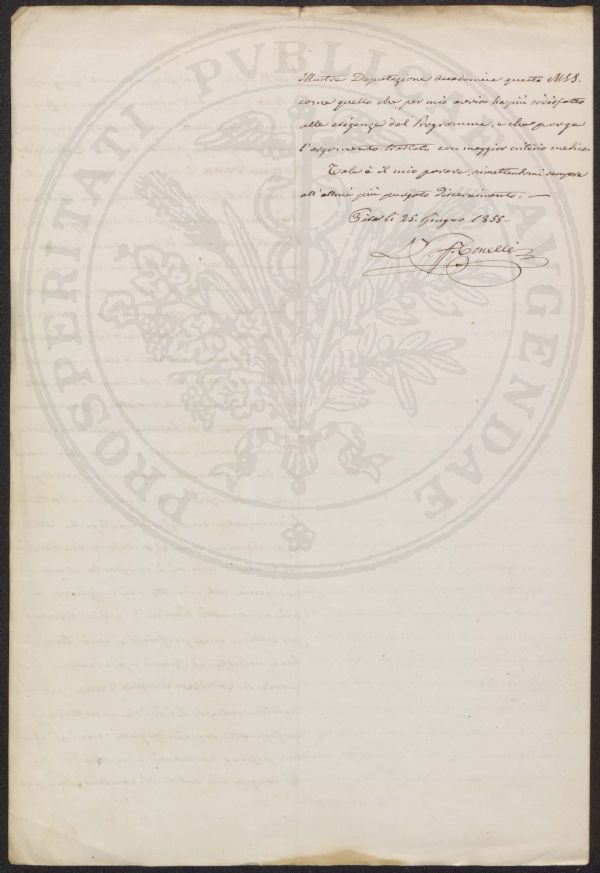 Illustre Deputazione Accademica questo MSS.
come quello che per mio avviso ha più sodisfatto
alle esigenze del Programma, e che porge
l'argomento trattato con maggior criterio medico.
Tale è il mio parere, rimettendomi sempre
all'altrui più purgato discernimento. —
li 25. Giugno 1855
F. Tonelli
PROSPERITATI PVBLICAE AVGENDAE